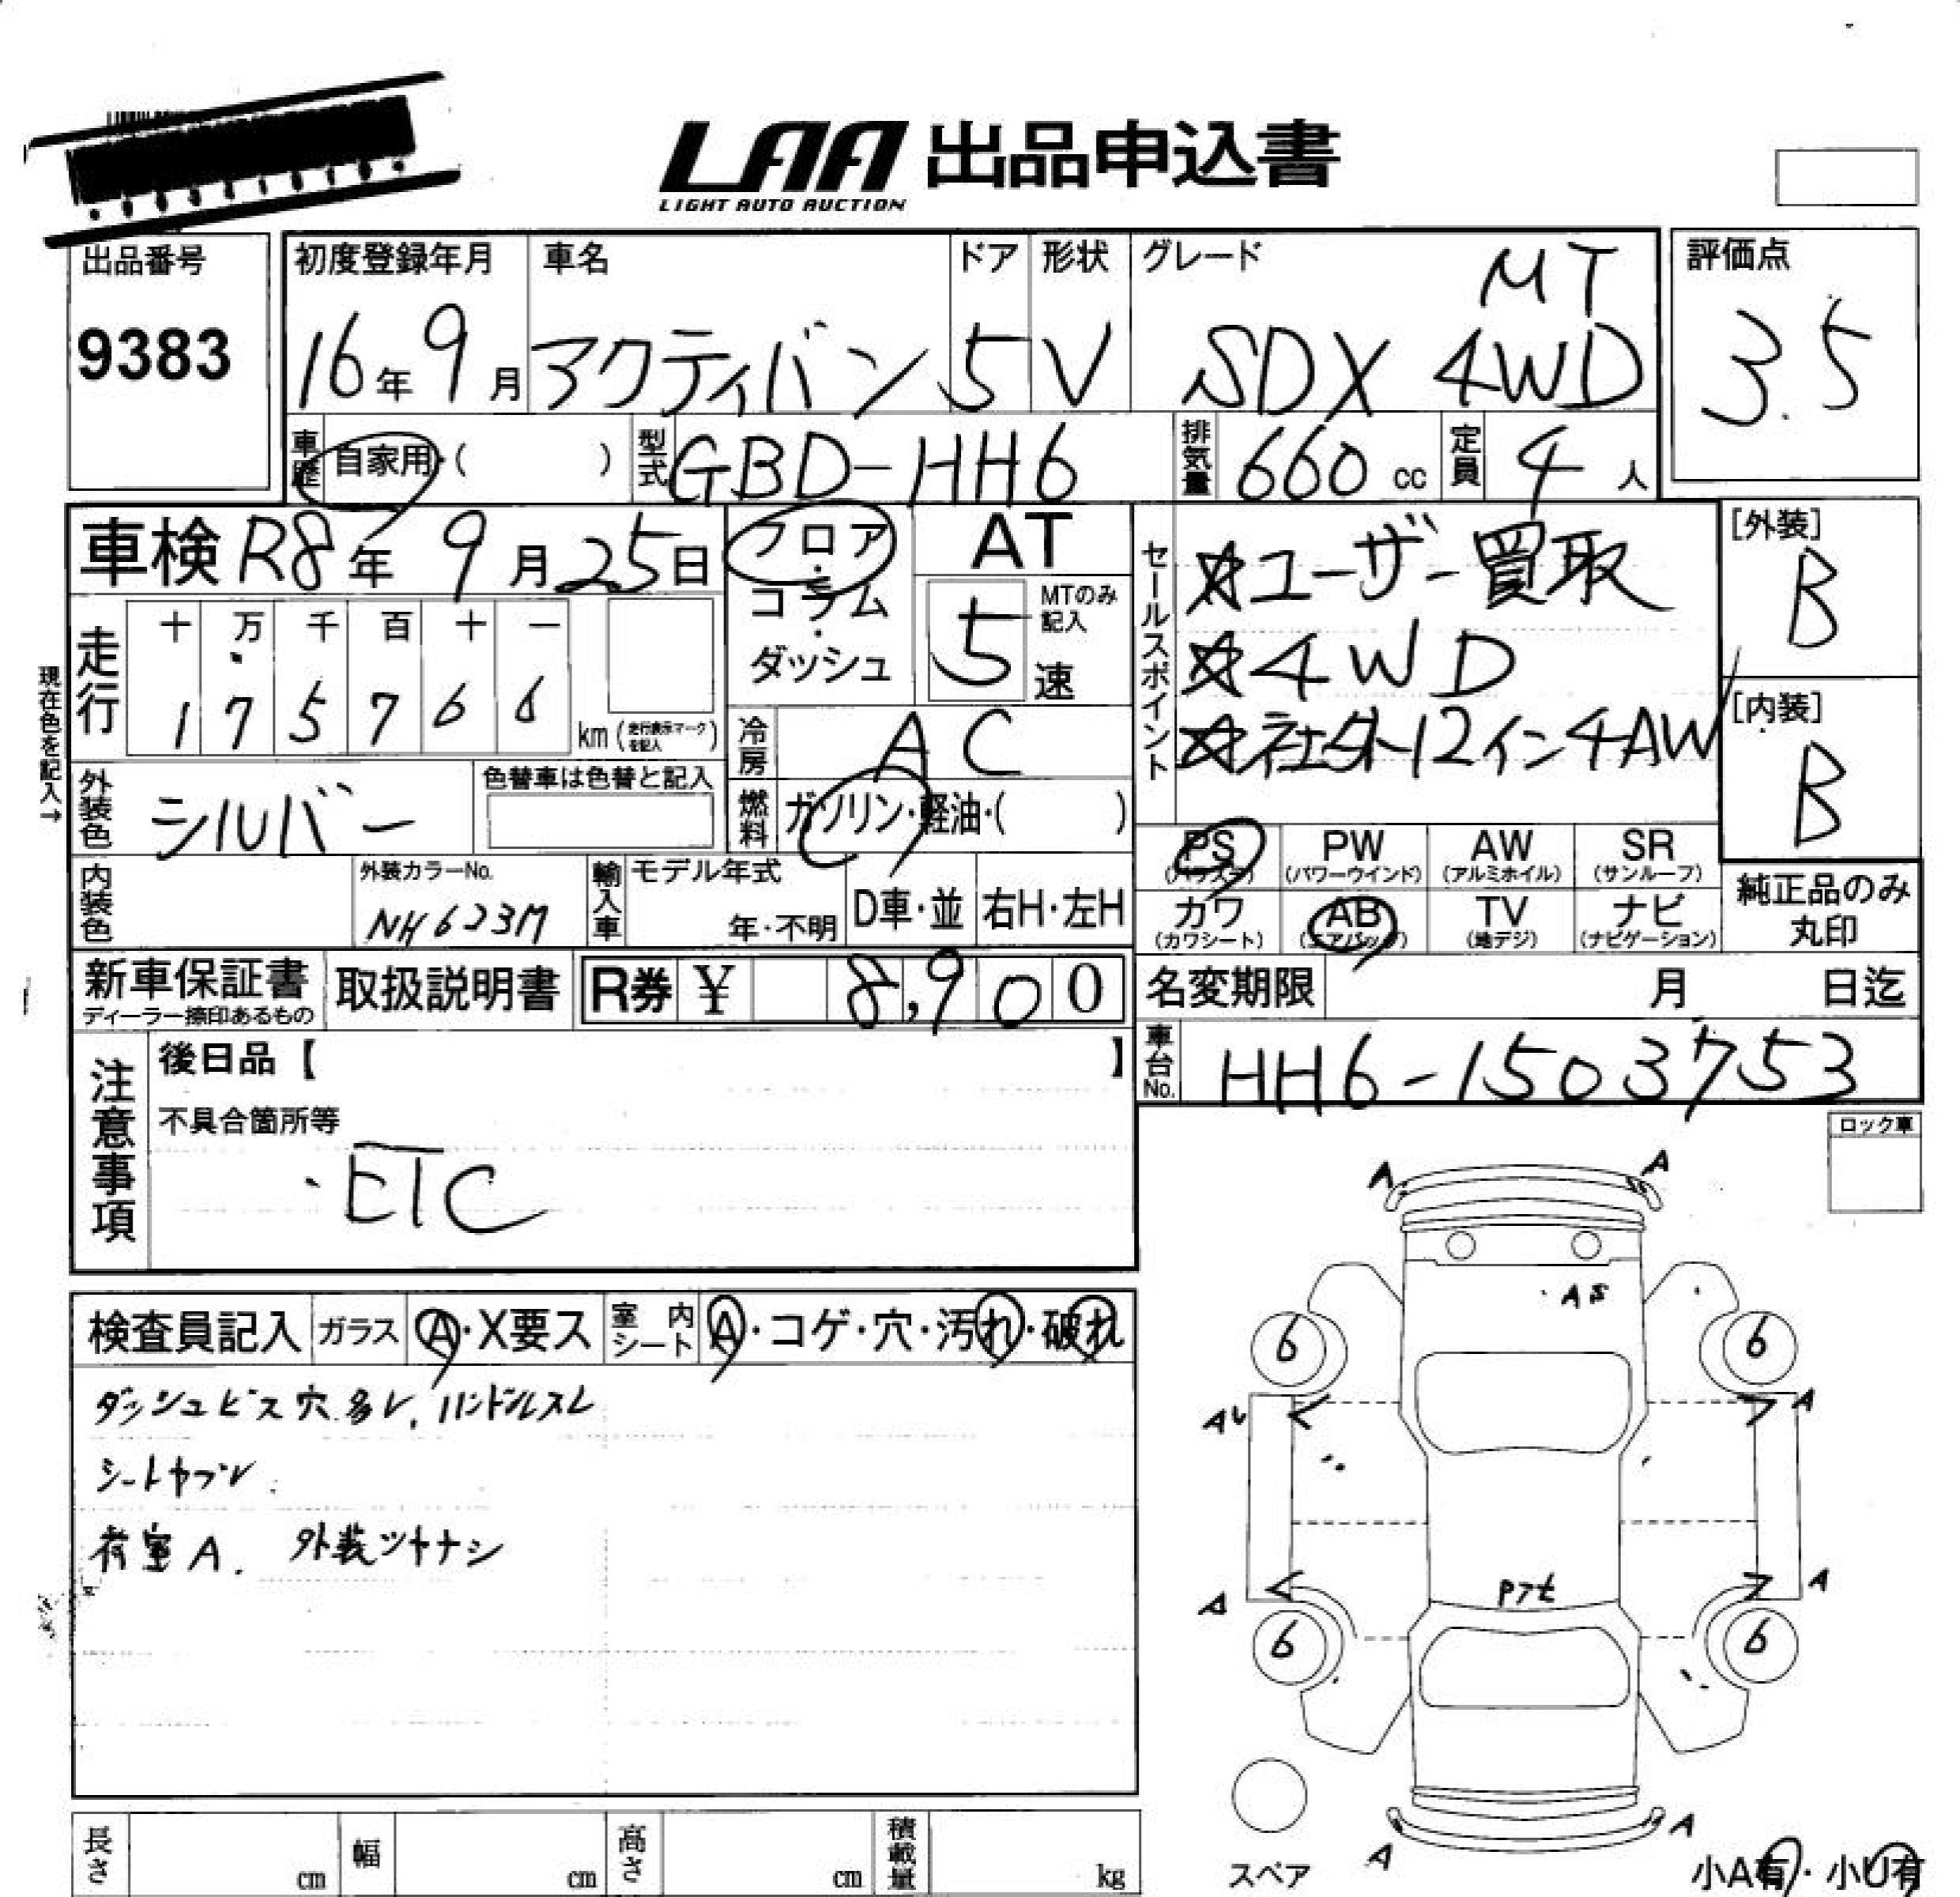 LAA 出品申込書
LIGHT AUTO AUCTION
出品番号
9383
初度登録年月
16年9月
車名
アクティバン
ドア
5
形状
V
グレード
MT
SDX 4WD
評価点
3.5
車歴 自家用・( )
型式 GBD-HH6
排気量 660 cc
定員 4 人
車検 R8年9月25日
フロア・コラム・ダッシュ
AT
5速
MTのみ記入
セールスポイント
☆ユーザー買取
☆4WD
☆社外12イン4AW
[外装]
B
[内装]
B
現在色を記入→
走行
十 万 千 百 十 一
1 7 5 7 6 6 km (走行表示マークを記入)
冷房 AC
外装色 シルバー
色替車は色替と記入
燃料 ガソリン・軽油・( )
PS PW AW SR
(パワステ) (パワーウインド) (アルミホイル) (サンルーフ)
カワ AB TV ナビ
(カワシート) (エアバッグ) (地デジ) (ナビゲーション)
純正品のみ
丸印
内装色
外装カラーNo.
NH623M
輸入車
モデル年式
年・不明
D車・並
右H・左H
新車保証書
ディーラー捺印あるもの
取扱説明書
R券 ¥ 8,900
名変期限 月 日迄
車台No. HH6-1503753
注意事項
後日品【 】
不具合箇所等
・ETC
ロック車
検査員記入
ガラス A・X要ス
室内シート A・コゲ・穴・汚れ・破れ
ダッシュビス穴多し、ハンドルスレ
シートヤブレ
荷室A. 外装ツヤナシ
A A
・AS
6 6
A A
A A
6 6
A A
スペア
小A有・小U有
長さ cm
幅 cm
高さ cm
積載量 kg